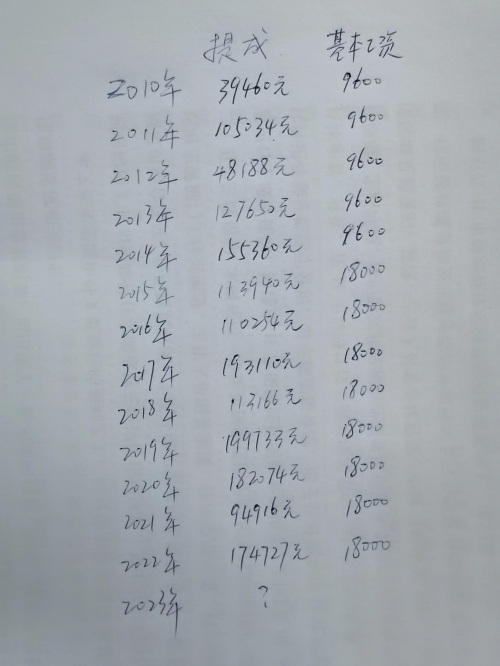 提成 基本工资
2010年 39460元 9600
2011年 105034元 9600
2012年 48188元 9600
2013年 127650元 9600
2014年 155360元 9600
2015年 113940元 18000
2016年 110254元 18000
2017年 193110元 18000
2018年 113166元 18000
2019年 199733元 18000
2020年 182074元 18000
2021年 94916元 18000
2022年 174727元 18000
2023年 ?